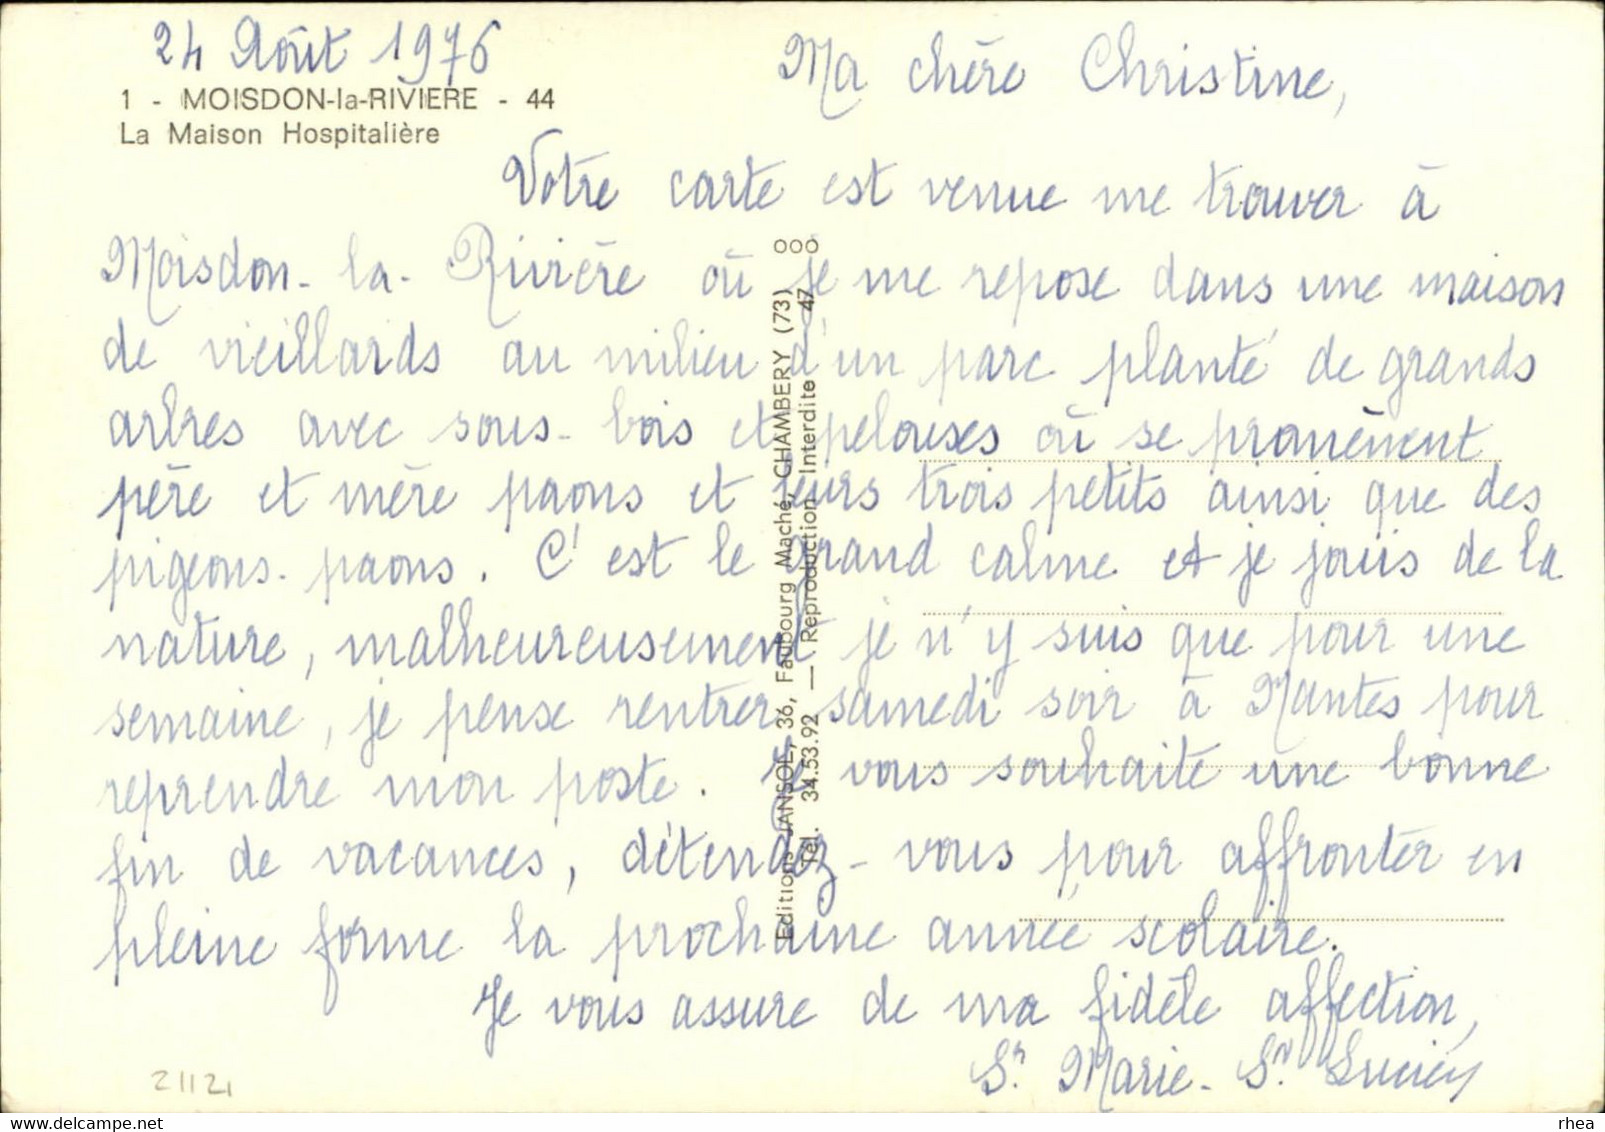 24 Août 1976
1 - MOISDON-la-RIVIERE - 44
La Maison Hospitalière
Ma chère Christine,
Votre carte est venue me trouver à
Moisdon-la-Rivière où je me repose dans une maison
de vieillards au milieu d'un parc planté de grands
arbres avec sous-bois et pelouses où se promènent
père et mère paons et leurs trois petits ainsi que des
pigeons-paons. C'est le grand calme et je jouis de la
nature, malheureusement je n'y suis que pour une
semaine, je pense rentrer samedi soir à Nantes pour
reprendre mon poste. Je vous souhaite une bonne
fin de vacances, détendez-vous pour affronter en
pleine forme la prochaine année scolaire.
Je vous assure de ma fidèle affection,
Sr Marie-St Lucien
Editions JANSOL, 36, Faubourg Maché, CHAMBERY (73) 000
Tél. 34.53.92 — Reproduction Interdite 47
21121
rhea
www.delcampe.net